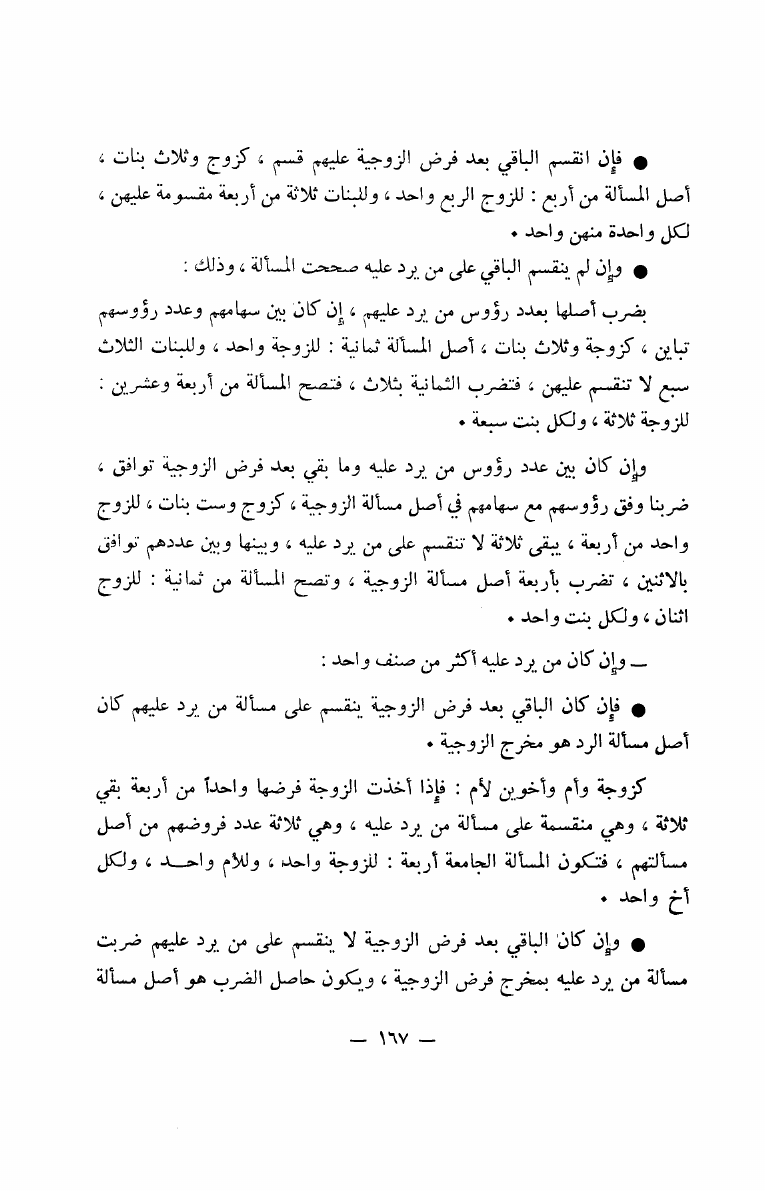 ● فإن انقسم الباقي بعد فرض الزوجية عليهم قسم ، كزوج وثلاث بنات ،
أصل المسألة من أربع : للزوج الربع واحد ، وللبنات ثلاثة من أربعة مقسومة عليهن ،
لكل واحدة منهن واحد .
● وإن لم ينقسم الباقي على من يرد عليه صححت المسألة ، وذلك :
بضرب أصلها بعدد رؤوس من يرد عليهم ، إن كان بين سهامهم وعدد رؤوسهم
تباين ، كزوجة وثلاث بنات ، أصل المسألة ثمانية : للزوجة واحد ، وللبنات الثلاث
سبع لا تنقسم عليهن ، فتضرب الثمانية بثلاث ، فتصح المسألة من أربعة وعشرين :
للزوجة ثلاثة ، ولكل بنت سبعة .
وإن كان بين عدد رؤوس من يرد عليه وما بقي بعد فرض الزوجية توافق ،
ضربنا وفق رؤوسهم مع سهامهم في أصل مسألة الزوجية ، كزوج وست بنات ، للزوج
واحد من أربعة ، يبقى ثلاثة لا تنقسم على من يرد عليه ، وبينها وبين عددهم توافق
بالاثنين ، تضرب بأربعة أصل مسألة الزوجية ، وتصح المسألة من ثمانية : للزوج
اثنان ، ولكل بنت واحد .
— وإن كان من يرد عليه أكثر من صنف واحد :
● فإن كان الباقي بعد فرض الزوجية ينقسم على مسألة من يرد عليهم كان
أصل مسألة الرد هو مخرج الزوجية .
كزوجة وأم وأخوين لأم : فإذا أخذت الزوجة فرضها واحداً من أربعة بقي
ثلاثة ، وهي منقسمة على مسألة من يرد عليه ، وهي ثلاثة عدد فروضهم من أصل
مسألتهم ، فتكون المسألة الجامعة أربعة : للزوجة واحد ، وللأم واحــد ، ولكل
أخ واحد .
● وإن كان الباقي بعد فرض الزوجية لا ينقسم على من يرد عليهم ضربت
مسألة من يرد عليه بمخرج فرض الزوجية ، ويكون حاصل الضرب هو أصل مسألة
— ١٦٧ —